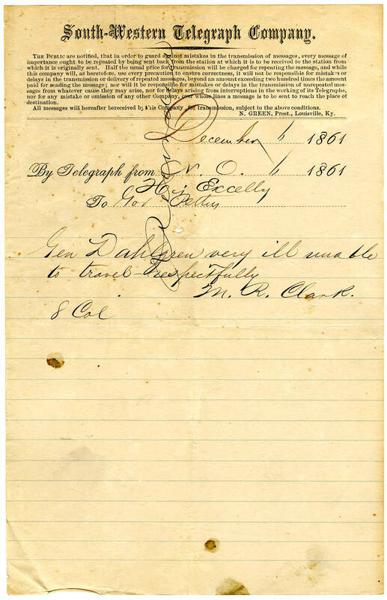 South-Western Telegraph Company.
THE PUBLIC are notified, that in order to guard against mistakes in the transmission of messages, every message of
importance ought to be repeated by being sent back from the station at which it is to be received to the station from
which it is originally sent. Half the usual price for transmission will be charged for repeating the message, and while
this company will, as heretofore, use every precaution to ensure correctness, it will not be responsible for mistakes or
delays in the transmission or delivery of repeated messages, beyond an amount exceeding two hundred times the amount
paid for sending the message; nor will it be responsible for mistakes or delays in the transmission of unrepeated mes-
sages from whatever cause they may arise, nor for delays arising from interruptions in the working of its Telegraphs,
nor for any mistake or omission of any other Company, over whose lines a message is to be sent to reach the place of
destination.
All messages will hereafter be received by this Company for transmission, subject to the above conditions.
N. GREEN, Prest, Louisville, Ky.
December 6 1861
By Telegraph from N. O. 6 1861
His Excelly
To Gov Pettus
Gen Dahlgreen very ill unable
to travel - respectfully
M. R. Clark.
8 Col